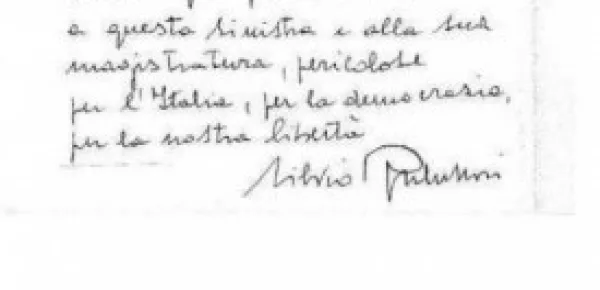 a questa sinistra e alla sua
magistratura, pericolose
per l'Italia, per la democrazia,
per la nostra libertà
Silvio Berlusconi